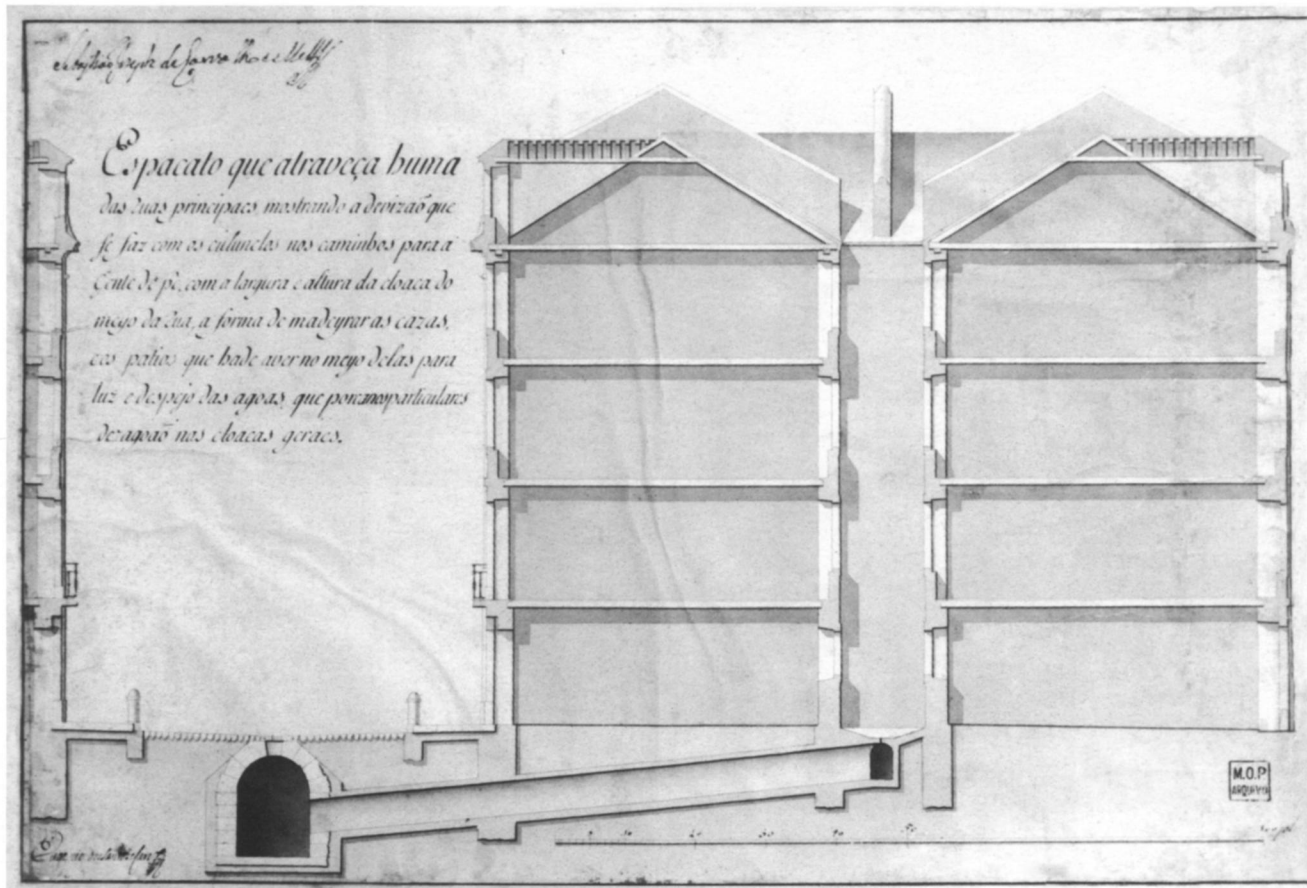 Sebastião Joseph de Carvalho e Mello
Espacato que atraveça huma
das ruas principaes, mostrando a divizaõ que
se faz com os culunelos nos caminhos para a
Gente de pè, com a largura e altura da cloaca do
meyo da rua, a forma de madeyrar as cazas,
e os patios que hade aver no meyo delas para
luz e despejo das agoas, que por canos particulares
dezagoaõ nas cloacas geraes.
M.O.P
ARQUIVO